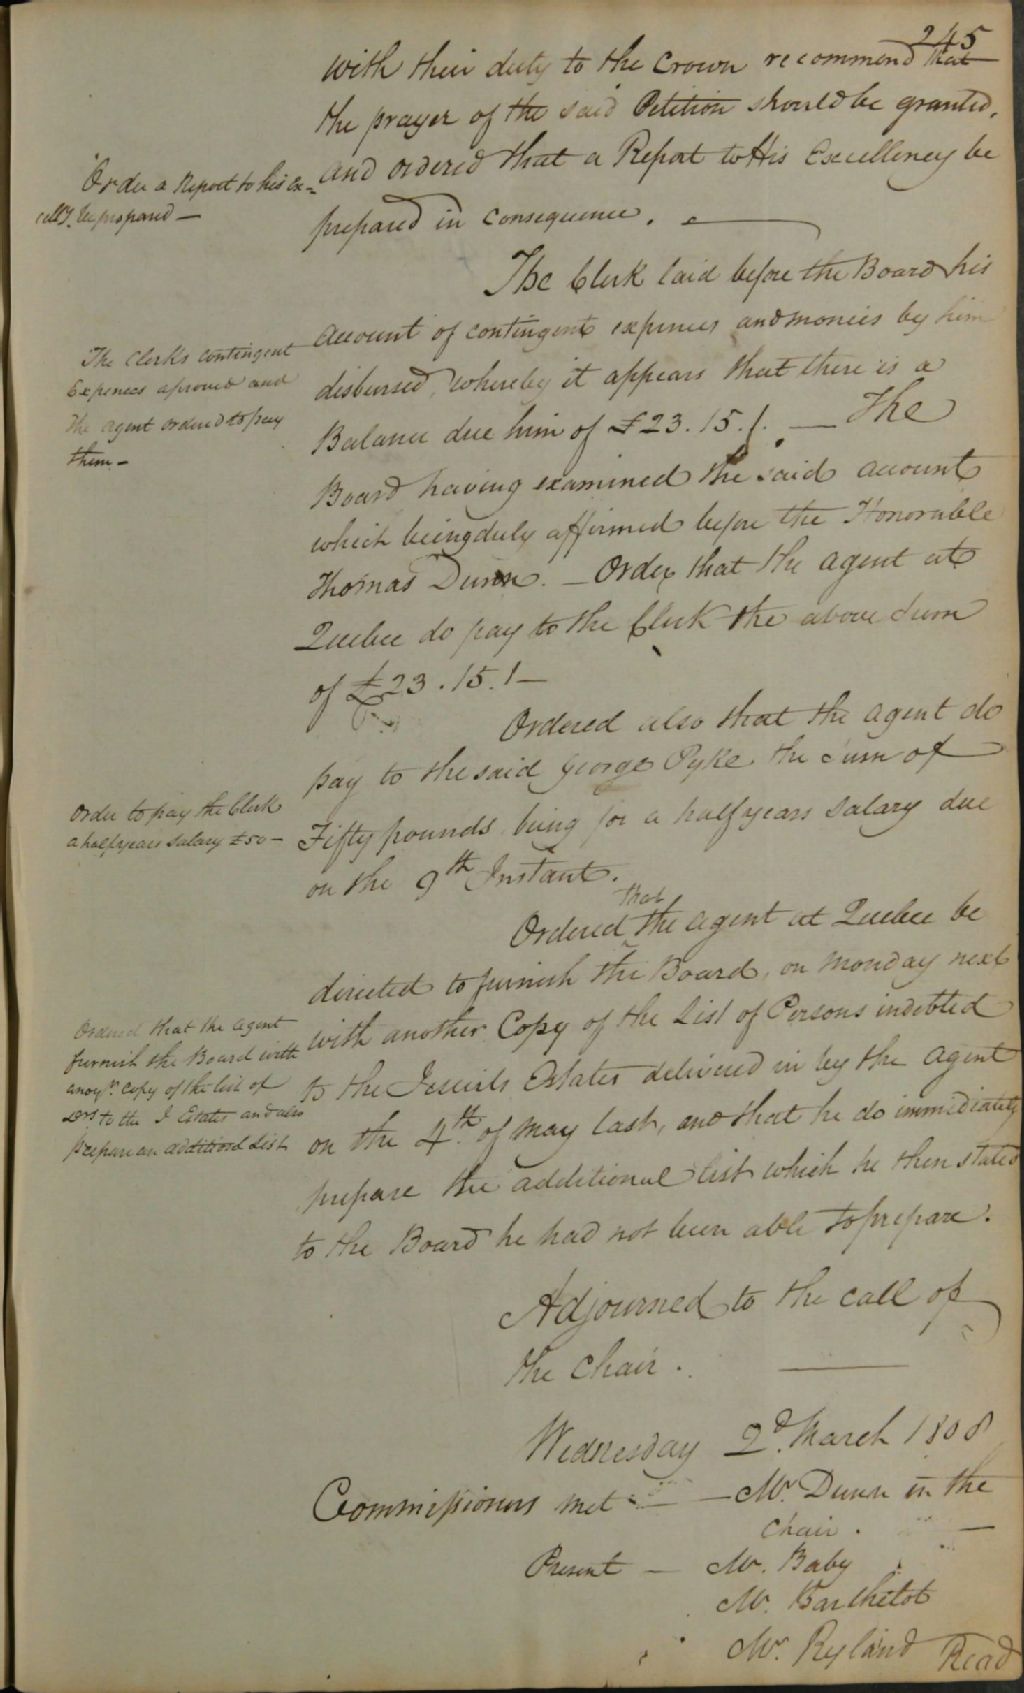 245
with their duty to the Crown recommend that
the prayer of the said Petition should be granted,
and ordered that a Report to His Excellency be
prepared in consequence.
Order a Report to his Ex=
celly. be prepared —
The Clerk laid before the Board his
account of contingent expences and monies by him
disbursed, whereby it appears that there is a
Balance due him of £23.15.1. — The
Board having examined the said account
which being duly affirmed before the Honorable
Thomas Dunn. — Order that the agent at
Quebec do pay to the Clerk the above Sum
of £23.15.1 —
The Clerks contingent
Expences aproved and
the agent ordered to pay
them —
Ordered also that the agent do
pay to the said George Pyke the Sum of
Fifty pounds being for a half years Salary due
on the 9th Instant.
Order to pay the Clerk
a half years Salary £50 —
Ordered that the agent at Quebec be
directed to furnish the Board, on Monday next
with another Copy of the List of Persons indebted
to the Jesuits Estates delivered in by the Agent
on the 4th of May last, and that he do immediately
prepare the additional list which he then stated
to the Board he had not been able to prepare.
Ordered that the agent
furnish the Board with
anoyr. copy of the list of
to the J Estates and also
prepare an additional List
Adjourned to the call of
the Chair.
Wednesday 2d. March 1808
Commissioners met — Mr. Dunn in the
Chair. —
Present — Mr. Baby
Mr. Barthelot
Mr. Ryland
Read